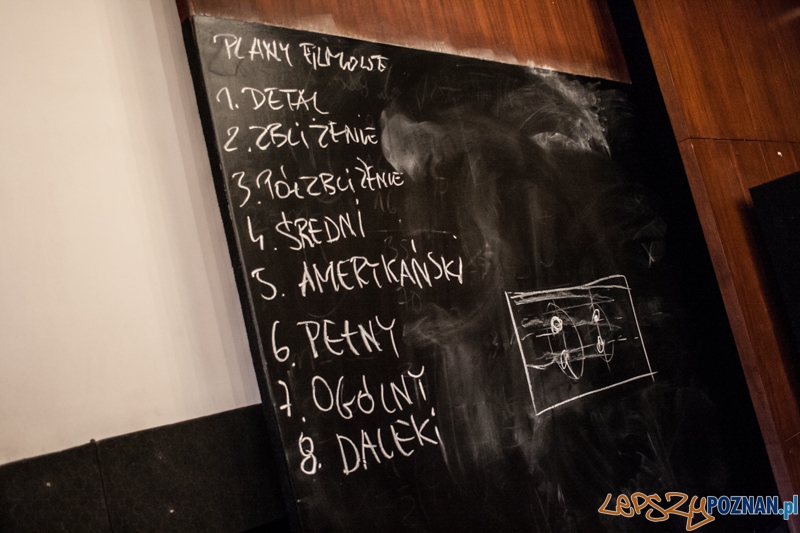 PLANY FILMOWE
1. DETAL
2. ZBLIŻENIE
3. PÓŁZBLIŻENIE
4. ŚREDNI
5. AMERYKAŃSKI
6. PEŁNY
7. OGÓLNY
8. DALEKI
LEPSZYPOZNAN.pl